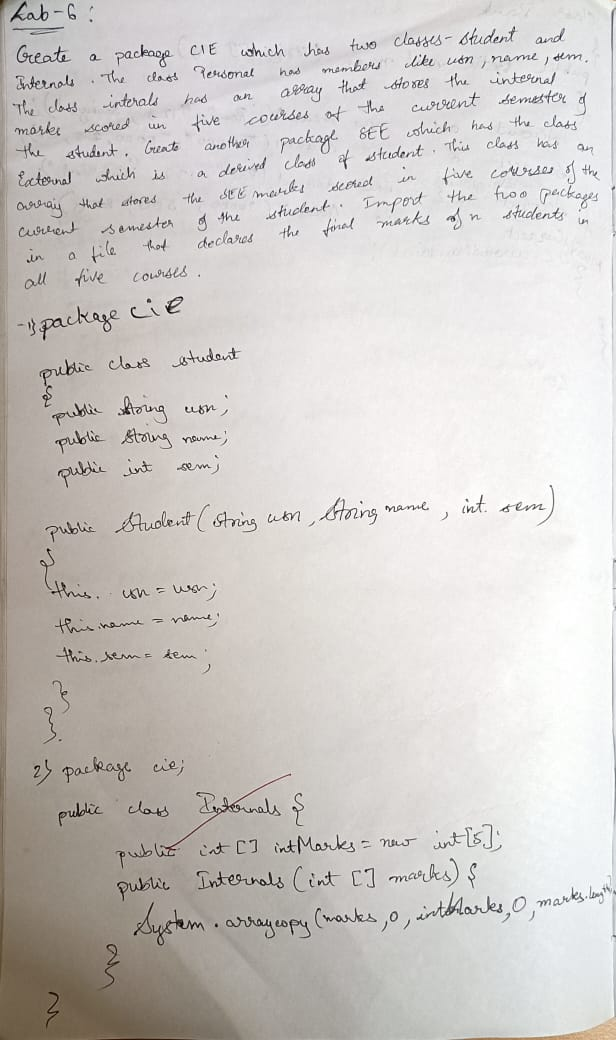 Lab-6:
Create a package CIE which has two classes- Student and
Internals. The class Personal has members like usn, name, sem.
The class interals has an array that stores the internal
marks scored in five courses of the current semester of
the student. Create another package SEE which has the class
External which is a derived class of student. This class has an
array that stores the SEE marks scored in five courses of the
current semester of the student. Import the two packages
in a file that declares the final marks of n students in
all five courses.
1) package cie
public class student
{
public String usn;
public String name;
public int sem;
public Student (String usn, String name, int. sem)
{
this. usn = usn;
this.name = name;
this.sem = sem;
}
}.
2) package cie;
public class Internals {
public int [] intMarks = new int[5];
public Internals (int [] marks) {
System.arraycopy (marks, 0, intMarks, 0, marks.length)
}
}